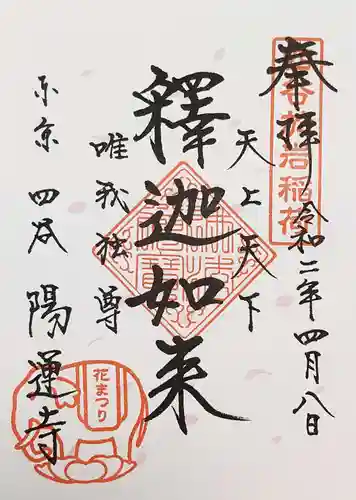 奉拝
令和二年四月八日
天上天下
釋迦如来
唯我独尊
东京 四谷 陽運寺
花まつり